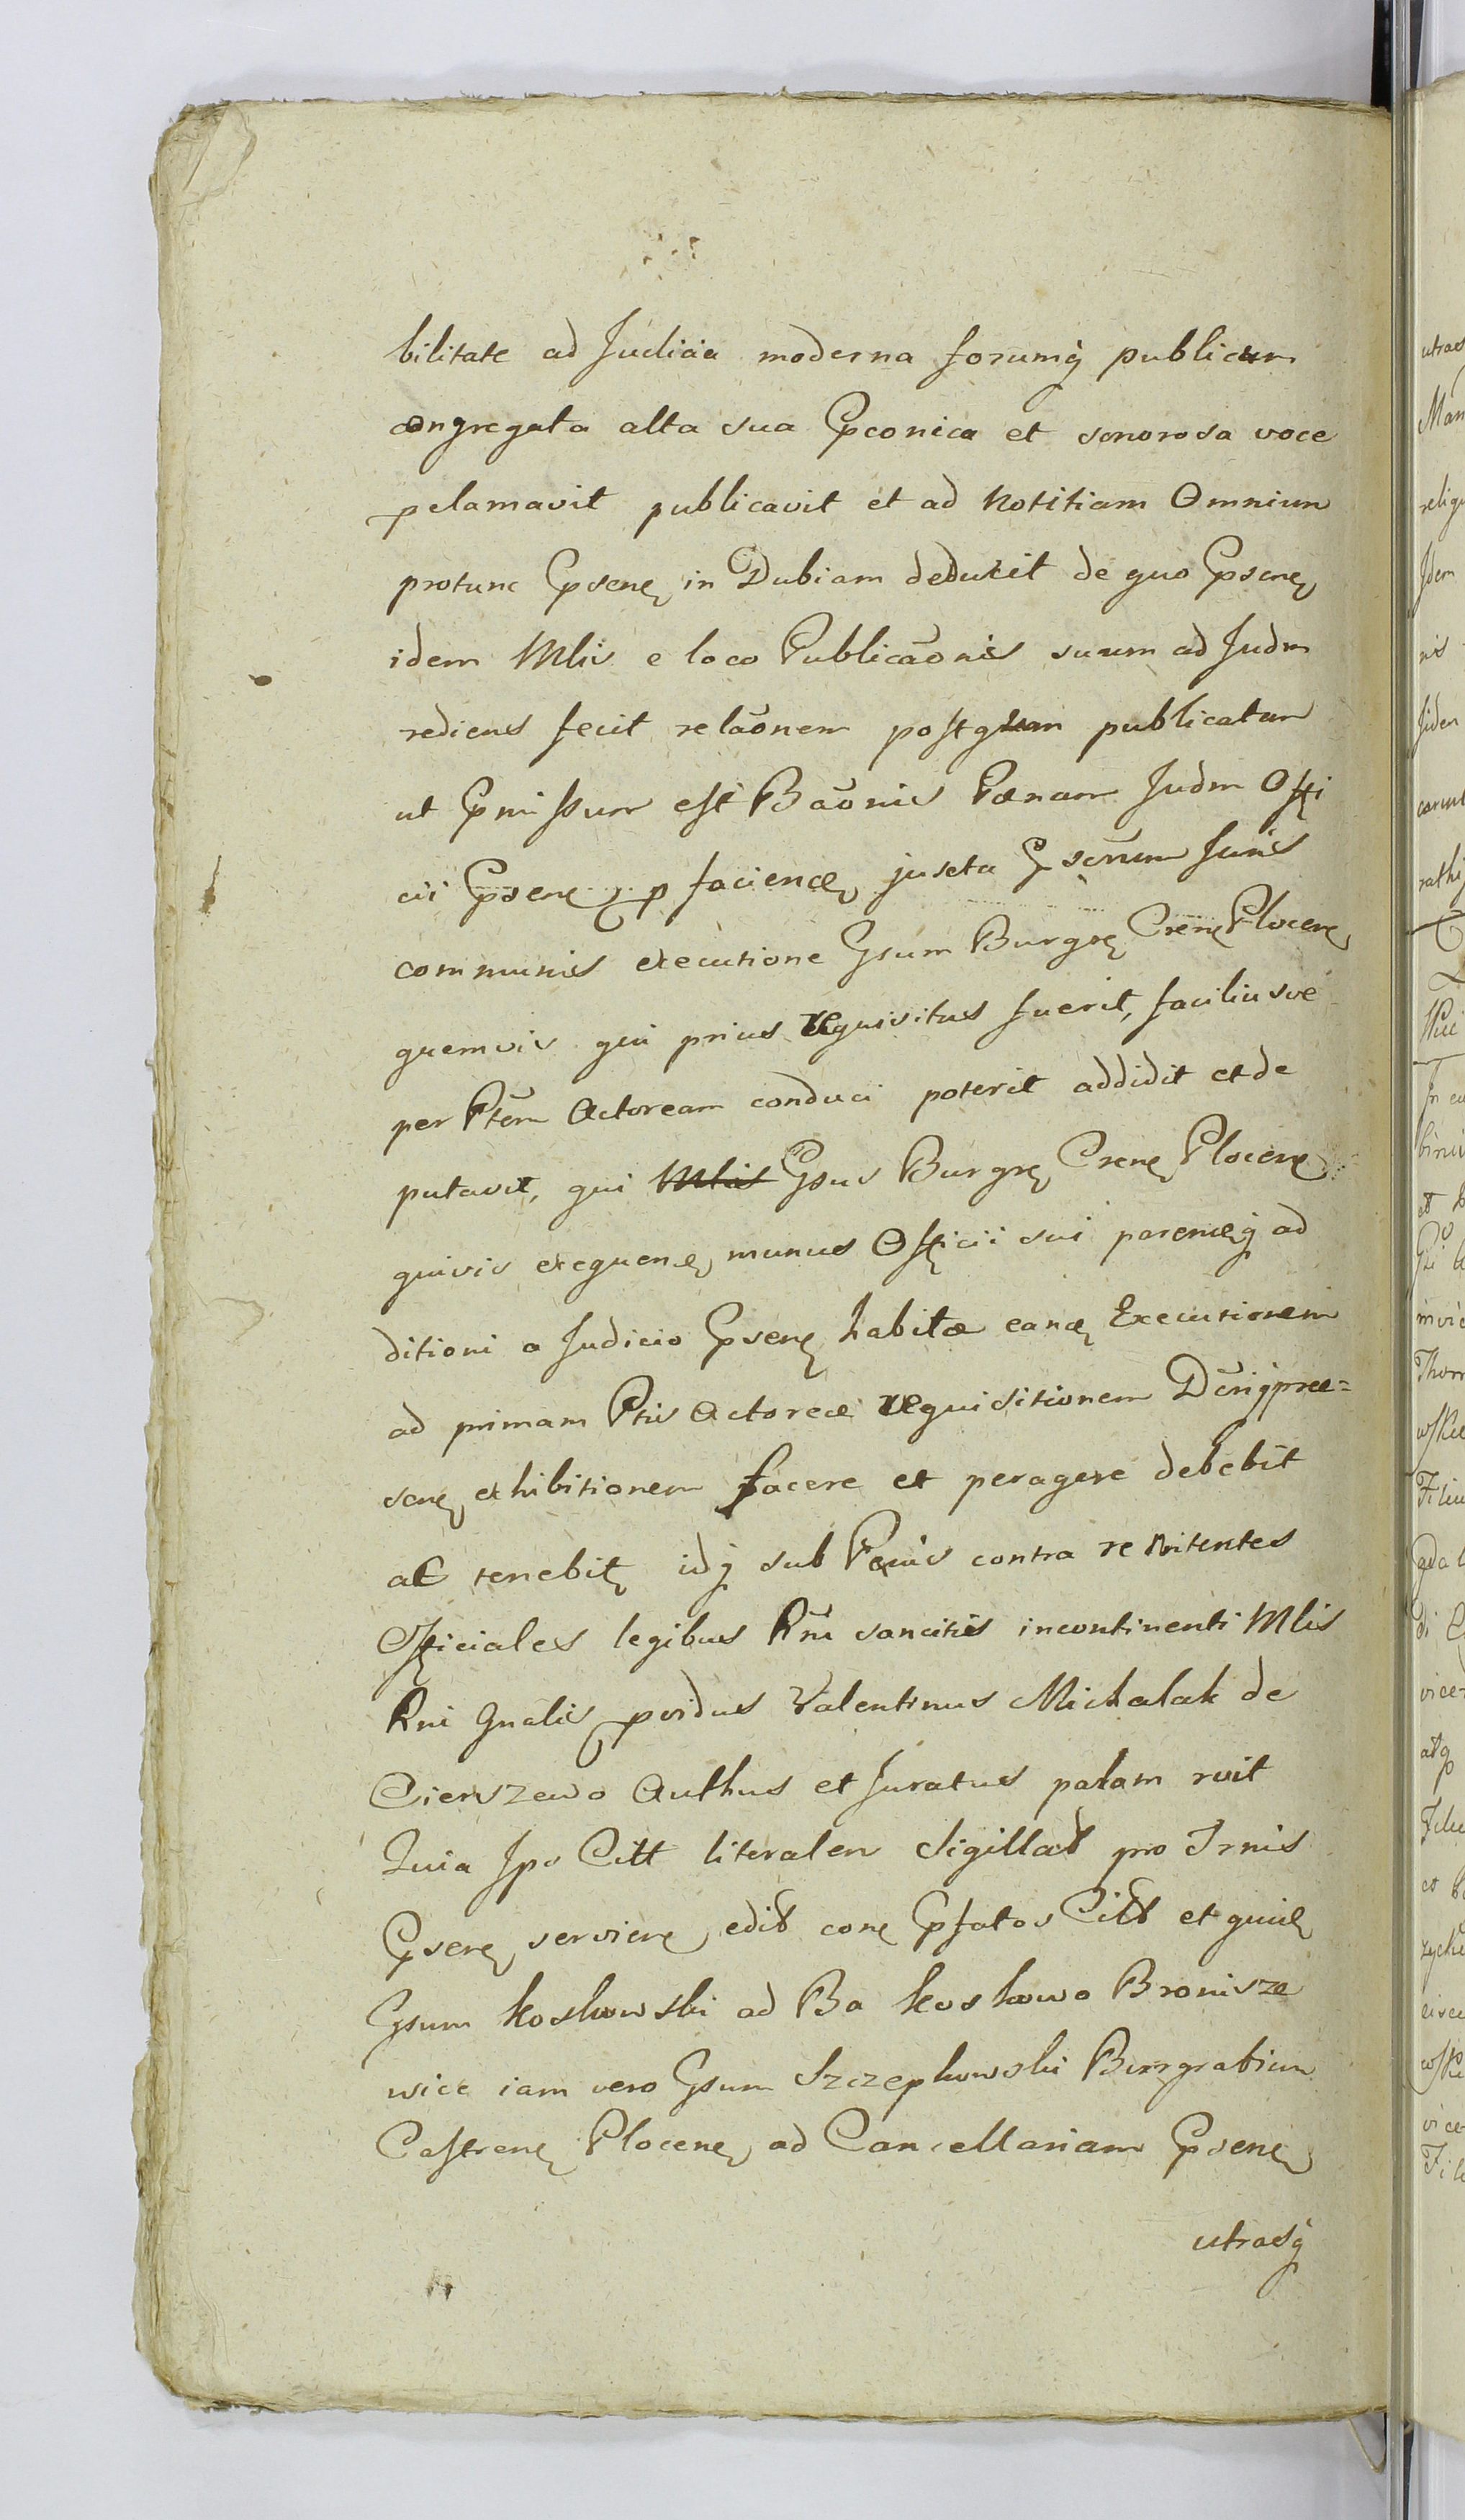 bilitate ad Judicia moderna forumq̀ publicum
congregata alta sua Ppconica et sonorosa voce
pclamavit publicavit et ad Notitiam Omnium
protunc Ppsenę in Dubiam deduxit de quo Ppsenę
idem Mlis e loco Publicãonis suum ad Judm
rediens fecit relãonem postquam publicatam
ut Ppmissum est Bãonis Pœnam Judm Offi
cii Ppsenę p facienđ juxta Ppscrium Juris
communis executione Gsum Burgrę Crenę Plocenę
quemvis qui prius requisitus fuerit, faciliusve
per Ptem Actoream conduci poterit addidit et de
putavit, qui Mlis Gsus Burgrę Crenę Plocenę
quivis exequenđ munus Officii sui parendq̀ ad
ditioni a Judicio Ppsenę habitæ eandę Executionem
ad primam Ptis Actoreæ requisitionem Dcriq̀ præ=
senę exhibitionem facere et peragere debebit
ac tenebitę idq̀ sub Pœnis contra renitentes
Officiales legibus Rni sancitis incontinenti Mlis
Rni Gnalis pvidus Valentinus Michalak de
Cierszewo Authus et Juratus palam rvit
Quia Ips Citt literalem Sigillat pro Trnis
Ppsenę serviene edit cone Ppfatos Citt et quidę
Gsum Koskowski ad Ba Koskowo Bronisze
wice iam vero Gsum Szczepkowski Burgrabium
Castrenę Plocenę ad Cancellariam Ppsenę
utrasq̀